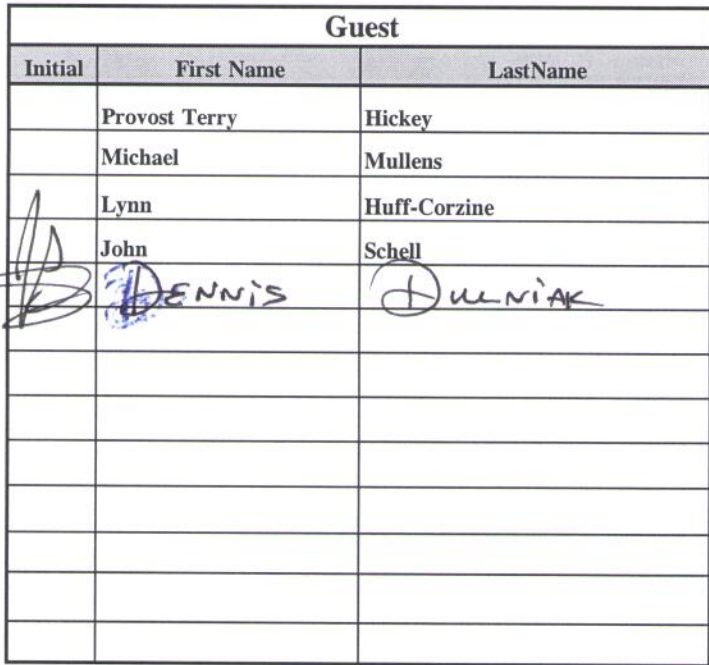 Guest
Initial First Name LastName
Provost Terry Hickey
Michael Mullens
Lynn Huff-Corzine
John Schell
DENNiS DULNiAK